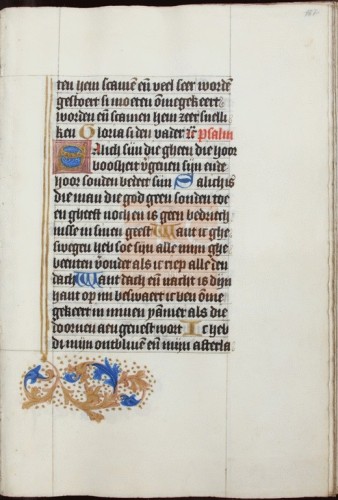 ten hem scamē eñ veel seer wordē
gestoert si moeten ōmegekeert
worden eñ scamen hem zeer snelli
ken Gloria si den vader ꝛc̄ psalm
Salich siin die gheen die hoer
boosheit v̄geuen siin ende
hoer sonden bedect siin Salich is
die man die god geen sonden toe
en gheeft noch en is geen bedriech
nisse in sinen geest Want ic ghe
swegen heb soe siin alle miin ghe
beenten v̄ouder als ic riep alle den
dach Want dach eñ nacht is diin
hant op mi beswaert ic ben ōme
gekeert in miiien als die
doernen aen geuest wort Ic heb
di miin ontbliuen eñ miin